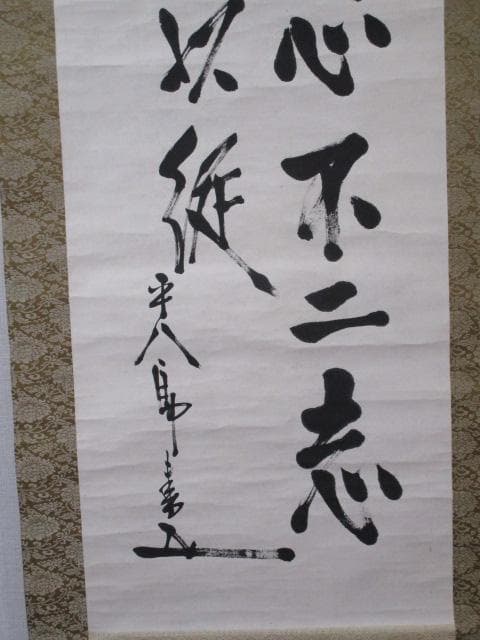 心不二志
以従
平八郎書